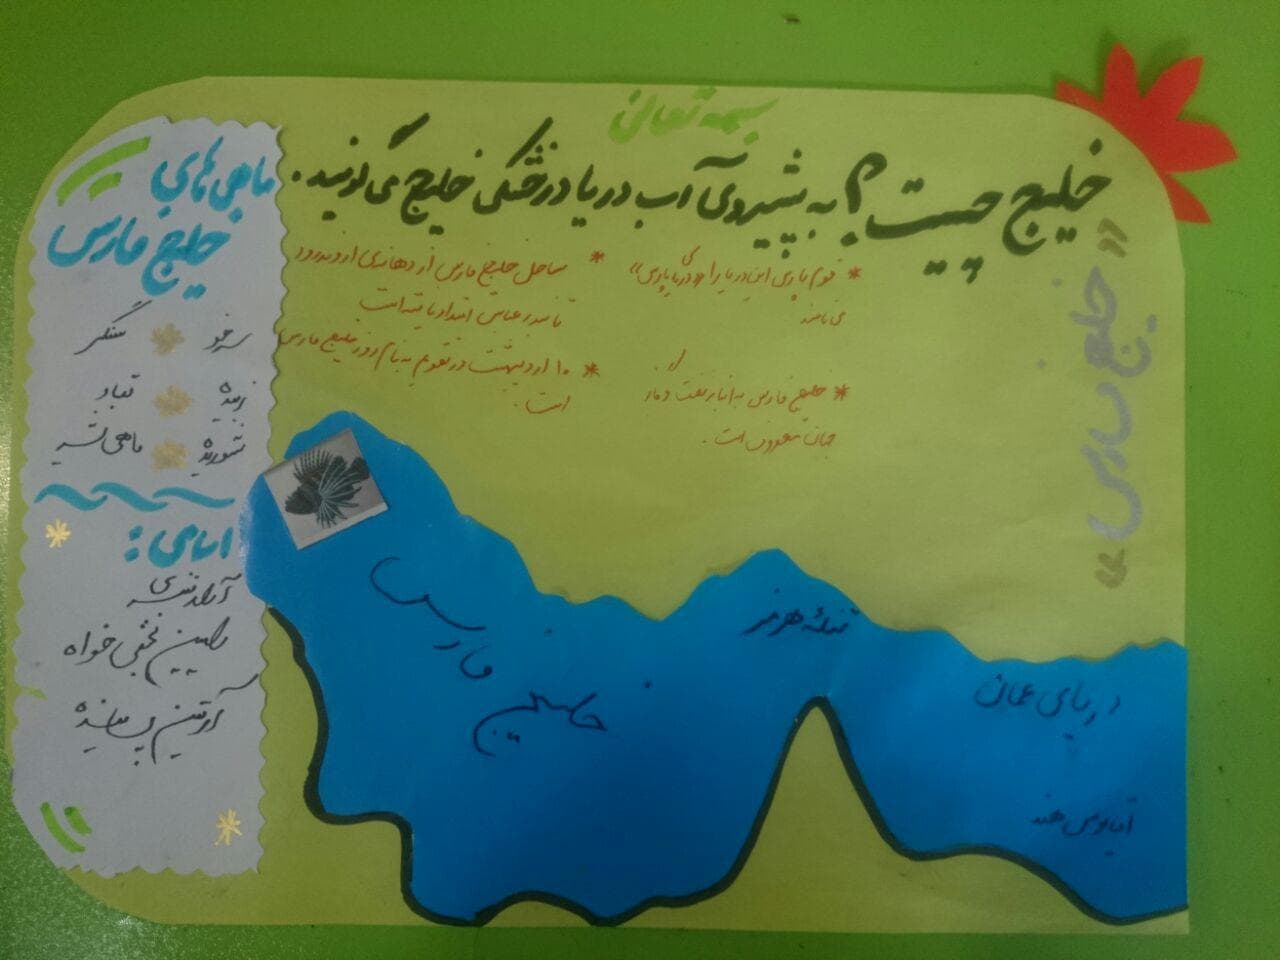 بسمه تعالی
خلیج چیست؟ به پیشروی آب دریا در خشکی خلیج می گویند.
«خلیج فارس»
* قوم پارسی این دریا را «دریای پارسی»
می نامند
* خلیج فارس به انبار نفت و گاز
جهان معروف است.
* ساحل خلیج فارس از دهانه‌ی اروندرود
تا بندرعباس امتداد یافته است
* ۱۰ اردیبهشت در تقویم به نام روز خلیج فارس
است.
ماهی های
خلیج فارس
سرخو سنگسر
زبیده قباد
شوریده ماهی
اسامی:
آراد
رامین خواه
آرتین
خلیج فارس
تنگه هرمز
دریای عمان
اقیانوس هند